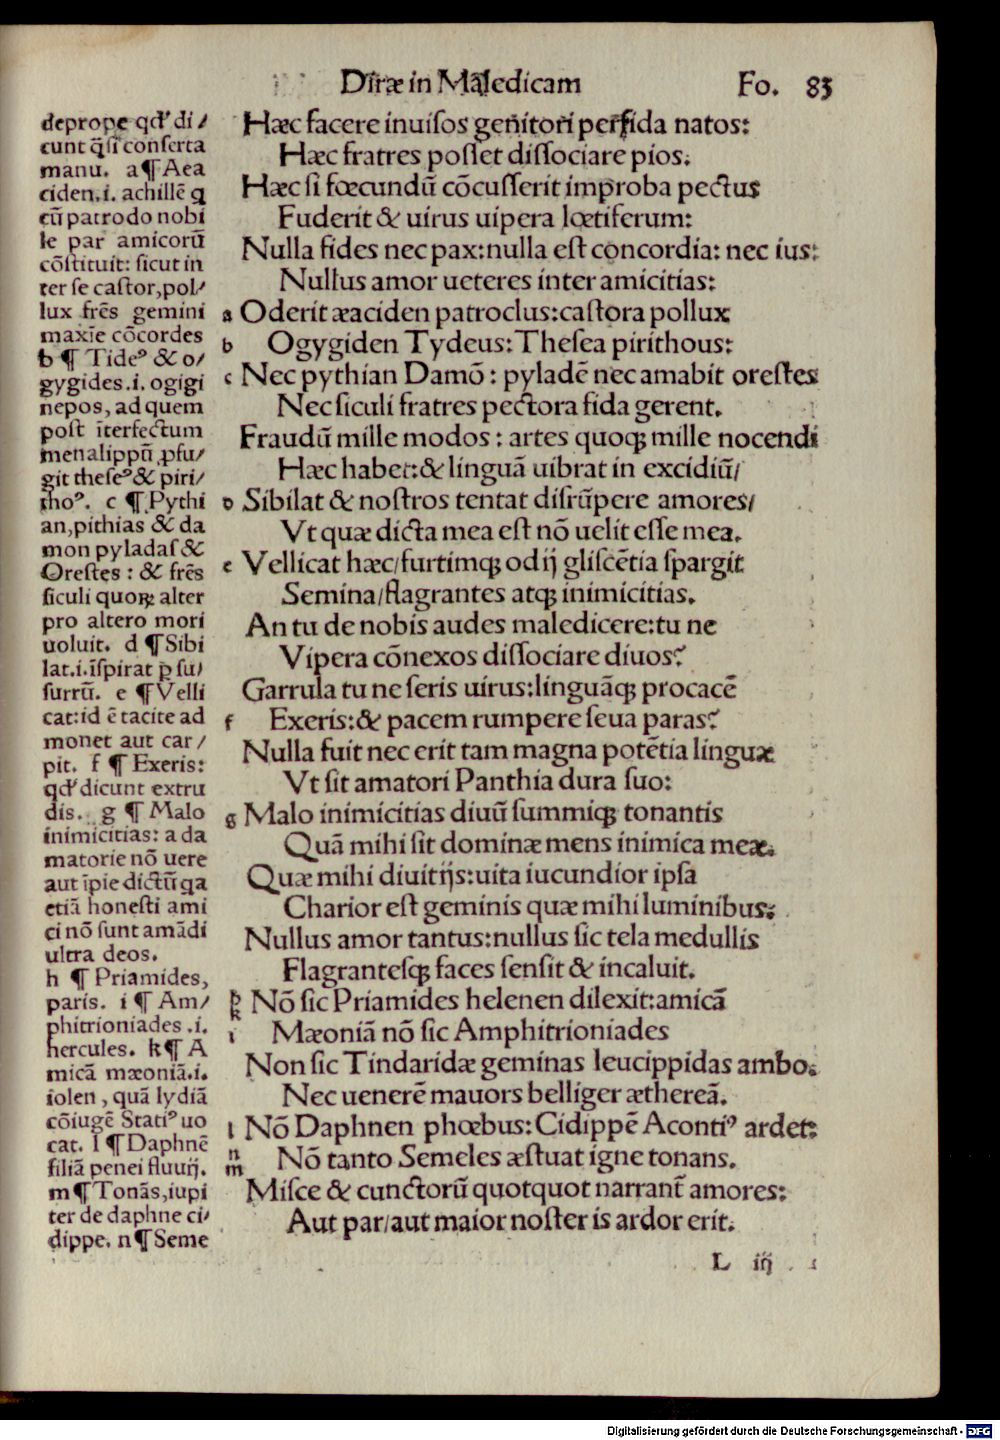 Diræ in Maledicam Fo. 83
deprope qđ di/
cunt q̃si conserta
manu. a ¶ Aea
ciden.i. achillē q
cū patrodo nobi
le par amicorū
cōstituit: sicut in
ter se castor,pol/
lux frēs gemini
maxīe cōcordes
b ¶ Tideꝰ & o/
gygides.i. ogigi
nepos, ad quem
post īterfectum
menalippū ꝓfu/
git theseꝰ & piri/
thoꝰ. c ¶ Pythi
an,pithias & da
mon pyladas &
Orestes : & frēs
siculi quoꝝ alter
pro altero mori
uoluit. d ¶ Sibi
lat.i.īspirat ꝑ su/
surrū. e ¶ Velli
cat:id ē tacite ad
monet aut car/
pit. f ¶ Exeris:
qđ dicunt extru
dis. g ¶ Malo
inimicitias: a da
matorie nō uere
aut īpie dictū qa
etiā honesti ami
ci nō sunt amādi
ultra deos.
h ¶ Priamides,
paris. i ¶ Am/
phitrioniades .i.
hercules. k ¶ A
micā mæoniā.i.
iolen, quā lydiā
cōiugē Statiꝰ uo
cat. l ¶ Daphnē
filiā penei fluuij.
m ¶ Tonās,iupi
ter de daphne ci/
dippe. n ¶ Seme
Hæc facere inuisos genitori perfida natos:
Hæc fratres posset dissociare pios.
Hæc si fœcundū cōcusserit improba pectus
Fuderit & uirus uipera lœtiferum:
Nulla fides nec pax:nulla est concordia: nec ius:
Nullus amor ueteres inter amicitias:
a Oderit æaciden patroclus:castora pollux
b Ogygiden Tydeus: Thesea pirithous:
c Nec pythian Damō : pyladē nec amabit orestes
Nec siculi fratres pectora fida gerent.
Fraudū mille modos : artes quoqꝫ mille nocendi
Hæc habet:& linguā uibrat in excidiū/
D Sibilat & nostros tentat disrūpere amores/
Vt quæ dicta mea est nō uelit esse mea.
e Vellicat hæc/furtimqꝫ odij gliscētia spargit
Semina/flagrantes atqꝫ inimicitias.
An tu de nobis audes maledicere:tu ne
Vipera cōnexos dissociare diuos?
Garrula tu ne seris uirus:linguāqꝫ procacē
f Exeris:& pacem rumpere seua paras?
Nulla fuit nec erit tam magna potētia linguæ
Vt sit amatori Panthia dura suo:
g Malo inimicitias diuū summiqꝫ tonantis
Quā mihi sit dominæ mens inimica meæ.
Quæ mihi diuitijs:uita iucundior ipsa
Charior est geminis quæ mihi luminibus:
Nullus amor tantus:nullus sic tela medullis
Flagrantesqꝫ faces sensit & incaluit.
h k Nō sic Priamides helenen dilexit:amicā
i Mæoniā nō sic Amphitrioniades
Non sic Tindaridæ geminas leucippidas ambo.
Nec uenerē mauors belliger æthereā.
l Nō Daphnen phœbus: Cidippē Acontiꝰ ardet:
n m Nō tanto Semeles æstuat igne tonans.
Misce & cunctorū quotquot narrant̄ amores:
Aut par/aut maior noster is ardor erit.
L iij
Digitalisierung gefördert durch die Deutsche Forschungsgemeinschaft - DFG